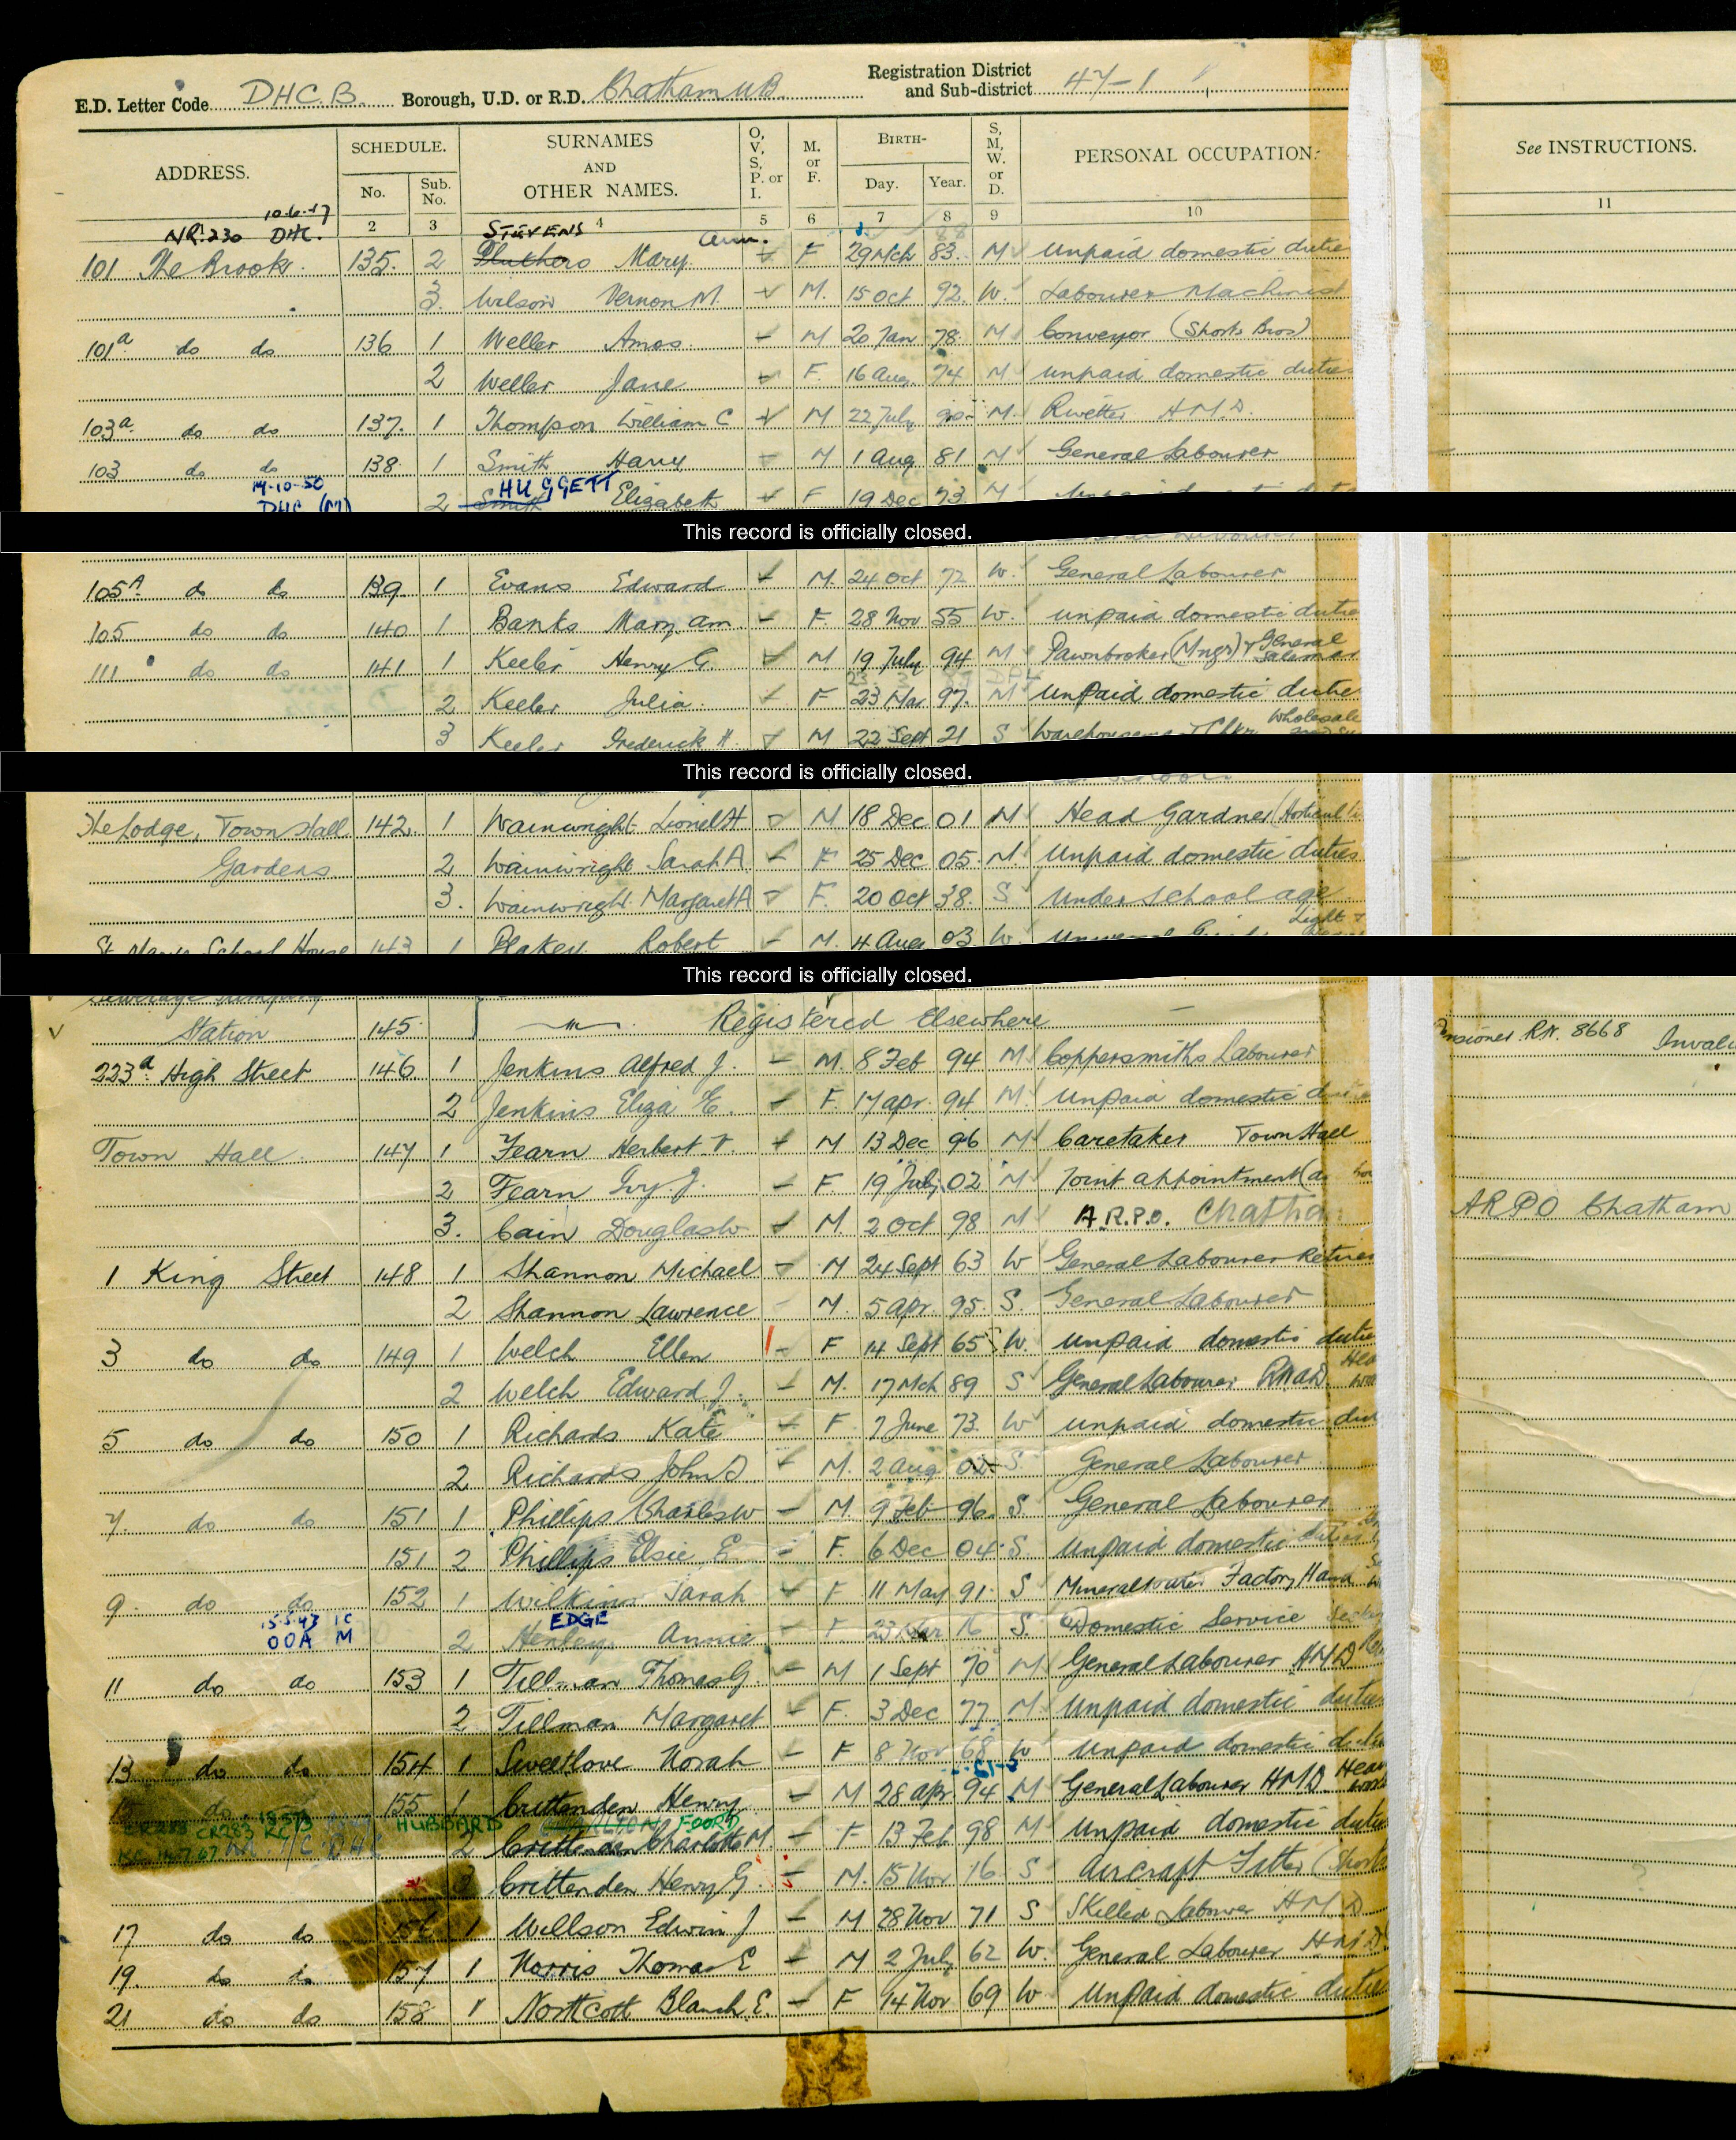 E.D. Letter Code DHC.B. Borough, U.D. or R.D. Chatham UB. Registration District and Sub-district 47-1
See INSTRUCTIONS.
ADDRESS. SCHEDULE. No. Sub. No. SURNAMES AND OTHER NAMES. O, V, S, P. or I. M. or F. BIRTH- Day. Year. S, M, W. or D. PERSONAL OCCUPATION.
2 3 4 5 6 7 8 9 10 11
NR.230 DHC. STEVENS Ann.
101 The Brook. 135. 2 Mary F 29 Mch 83. M Unpaid domestic dutie
3. Wilson Vernon M. M. 15 Oct 92. W. Labourer Machinist
101a do do 136 1 Weller Amos. M 20 Jan 78. M Conveyor (Shorts Bros)
2 Weller Jane F. 16 Aug. 74 M unpaid domestic dutie
103a do do 137. 1 Thompson William C M 22 July M. Rivetter H M D.
103 do do 138. 1 Smith Harry M 1 Aug 81 M General Labourer
14-10-50 DHC (M) HUGGETT
2 Smith Elizabeth F 19 Dec 73. M
This record is officially closed.
105A do do 139 1 Evans Edward M. 24 Oct 72 W. General Labourer
105 do do 140 1 Banks Mary Ann F. 28 Nov 55 W. unpaid domestic dutie
111 do do 141 1 Keeler Henry G. M 19 July 94 M Pawnbroker (Mngr) & General Salesman
2 Keeler Julia. F 23 Mar 97. M Unpaid domestic dutie
3 Keeler Frederick H. M 22 Sept 21 S Wholesale
This record is officially closed.
The Lodge, Town Hall 142. 1 Wainwright Lionel H M 18 Dec 01 M Head Gardner
Gardens 2 Wainwright Sarah A F 25 Dec 05. M. Unpaid domestic duties
3. Wainwright Margaret A F. 20 Oct 38. S Under school age
St Marys School House 143 1 Blakey Robert M. 4 Aug 03 W. Light
This record is officially closed.
Sewerage Pumping
Station 145 Registered Elsewhere
Pensioner RN. 8668
223a High Street 146. 1 Jenkins Alfred J. M. 8 Feb 94 M Coppersmiths Labourer
2 Jenkins Eliza E. F. 17 apr. 94 M. Unpaid domestic
Town Hall 147 1 Fearn Herbert M 13 Dec 96 M Caretaker Town Hall
2 Fearn Ivy J. F. 19 July 02 M Joint appointment
3. Cain Douglas W M. 2 Oct 98 M A.R.P.O. Chatha ARPO Chatham
1 King Street 148 1 Shannon Michael M 24 Sept 63 W General Labourer Retire
2 Shannon Lawrence M. 5 apr. 95. S. General Labourer
3 do do 149 1 Welch Ellen F 14 Sept 65 W. Unpaid domestic dutie
2 Welch Edward J. M. 17 Mch 89 S General Labourer
5 do do 150 1 Richards Kate F. 7 June 73. W unpaid domestic
2 Richards John M. 2 Aug S. General Labourer
7. do do 151 1 Phillips Charles W M. 9 Feb 96. S. General Labourer
151 2 Phillips Elsie E. F. 6 Dec 04. S. Unpaid domestic duties
9. do do 152 1 Wilkins Sarah F 11 May 91. S Mineralwater Factory Hand
15.5.43 OOA M EDGE
2 Henley Annie F. 23 16 S. Domestic Service
11 do do 153 1 Tillman Thomas G. M 1 Sept 70 M General Labourer HMD
2 Tillman Margaret F. 3 Dec 77. M Unpaid domestic dutie
13 do do 154 1 Sweetlove Norah F 8 Nov 68 W Unpaid domestic dutie
15 do 155 1 Crittenden Henry M 28 apr 94 M General Labourer HMD Heavy
HUBBARD FOORD
CR283
2 Crittenden Charlotte M. F 13 Feb 98 M Unpaid domestic dutie
3 Crittenden Henry G. M. 15 Nov 16 S Aircraft Fitter
17 do do 156 1 Willson Edwin J M 28 Nov 71 S Skilled Labourer H M D
19. do do 157 1 Norris Thomas E M 2 July 62 W. General Labourer HMD
21 do do 158 1 Northcott Blanch E. F 14 Nov 69 W Unpaid domestic dutie